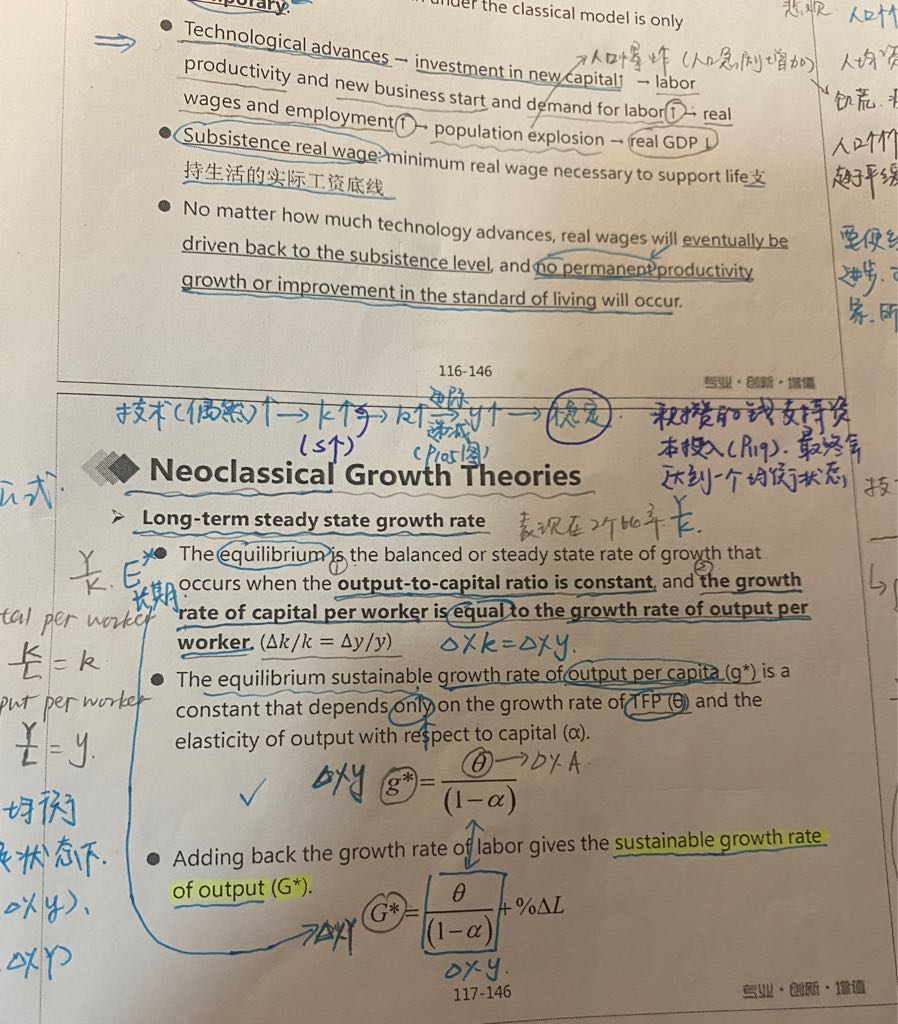 under the classical model is only
Technological advances → investment in new capital↑ → labor
productivity and new business start and demand for labor↑ → real
wages and employment↑ → population explosion → real GDP ↓
人口爆炸 (人口急剧增加)
Subsistence real wage: minimum real wage necessary to support life支
持生活的实际工资底线
No matter how much technology advances, real wages will eventually be
driven back to the subsistence level, and no permanent productivity
growth or improvement in the standard of living will occur.
116-146
专业·创新·增值
悲观
人口个
人均资
饥荒
人口个个
趋于平缓
要便
进步
家.所
技术(偶然)↑ → k↑ → k↑ → y↑ → 稳定.
(S↑)
边际
递减
(P105图)
积攒的钱支持资
本投入(P119). 最终会
达到一个均衡状态
技
Neoclassical Growth Theories
Long-term steady state growth rate
表现在2个比率 Y/K.
The equilibrium is the balanced or steady state rate of growth that
occurs when the output-to-capital ratio is constant, and the growth
rate of capital per worker is equal to the growth rate of output per
worker. (Δk/k = Δy/y) Δ%k=Δ%y.
① ②
The equilibrium sustainable growth rate of output per capita (g*) is a
constant that depends only on the growth rate of TFP (θ) and the
elasticity of output with respect to capital (α).
Δ%y g* = θ/(1−α) → Δ%A
Adding back the growth rate of labor gives the sustainable growth rate
of output (G*).
Δ%Y G* = θ/(1−α) + %ΔL
Δ%y.
117-146
专业·创新·增值
公式.
Y/K. E*
长期
tal per worker
K/L = k
put per worker
Y/L = y.
均衡
状态下.
Δ%y)、
Δ%Y)